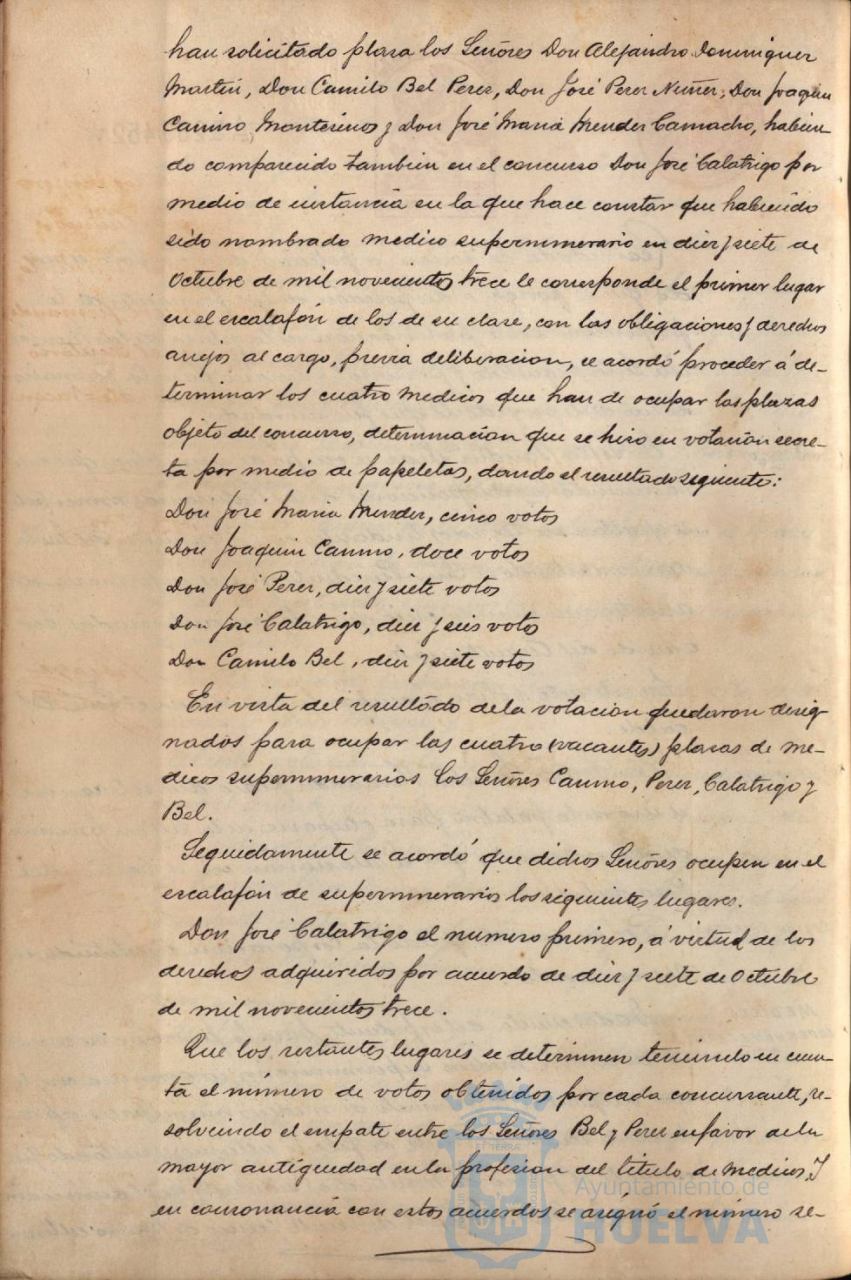 han solicitado plasa los Señores Don Alejandro Dominguez
Martin, Don Camilo Bel Perez, Don José Perez Nuñez, Don Joaquin
Canino Montesinos y Don José Maria Mendez Camacho, habien
do comparecido tambien en el concurso Don José Calatrigo por
medio de instancia en la que hace constar que habiendo
sido nombrado medico supernumerario en diez y siete de
Octubre de mil novecientos trece le corresponde el primer lugar
en el escalafón de los de su clase, con las obligaciones y derechos
anejos al cargo, previa deliberacion, se acordó proceder á de-
terminar los cuatro medicos que han de ocupar las plazas
objeto del concurso, determinacion que se hizo en votación secre-
ta por medio de papeletas, dando el resultado siguiente:
Don José Maria Mendez, cinco votos
Don Joaquin Canino, doce votos
Don José Perez, diez y siete votos
Don José Calatrigo, diez y seis votos
Don Camilo Bel, diez y siete votos
En vista del resultado de la votacion quedaron desig-
nados para ocupar las cuatro (vacantes) plasas de me-
dicos supernumerarios los Señores Canino, Perez, Calatrigo y
Bel.
Seguidamente se acordó que dichos Señores ocupen en el
escalafón de supernumerarios los siguientes lugares.
Don José Calatrigo el numero primero, á virtud de los
derechos adquiridos por acuerdo de diez y siete de Octubre
de mil novecientos trece.
Que los restantes lugares se determinen teniendo en cuen-
ta el número de votos obtenidos por cada concursante, re-
solviendo el empate entre los Señores Bel y Perez en favor de la
mayor antigüedad en la profesion del titulo de medicos, Y
en consonancia con estos acuerdos se asignó el número se-
Ayuntamiento de
HUELVA